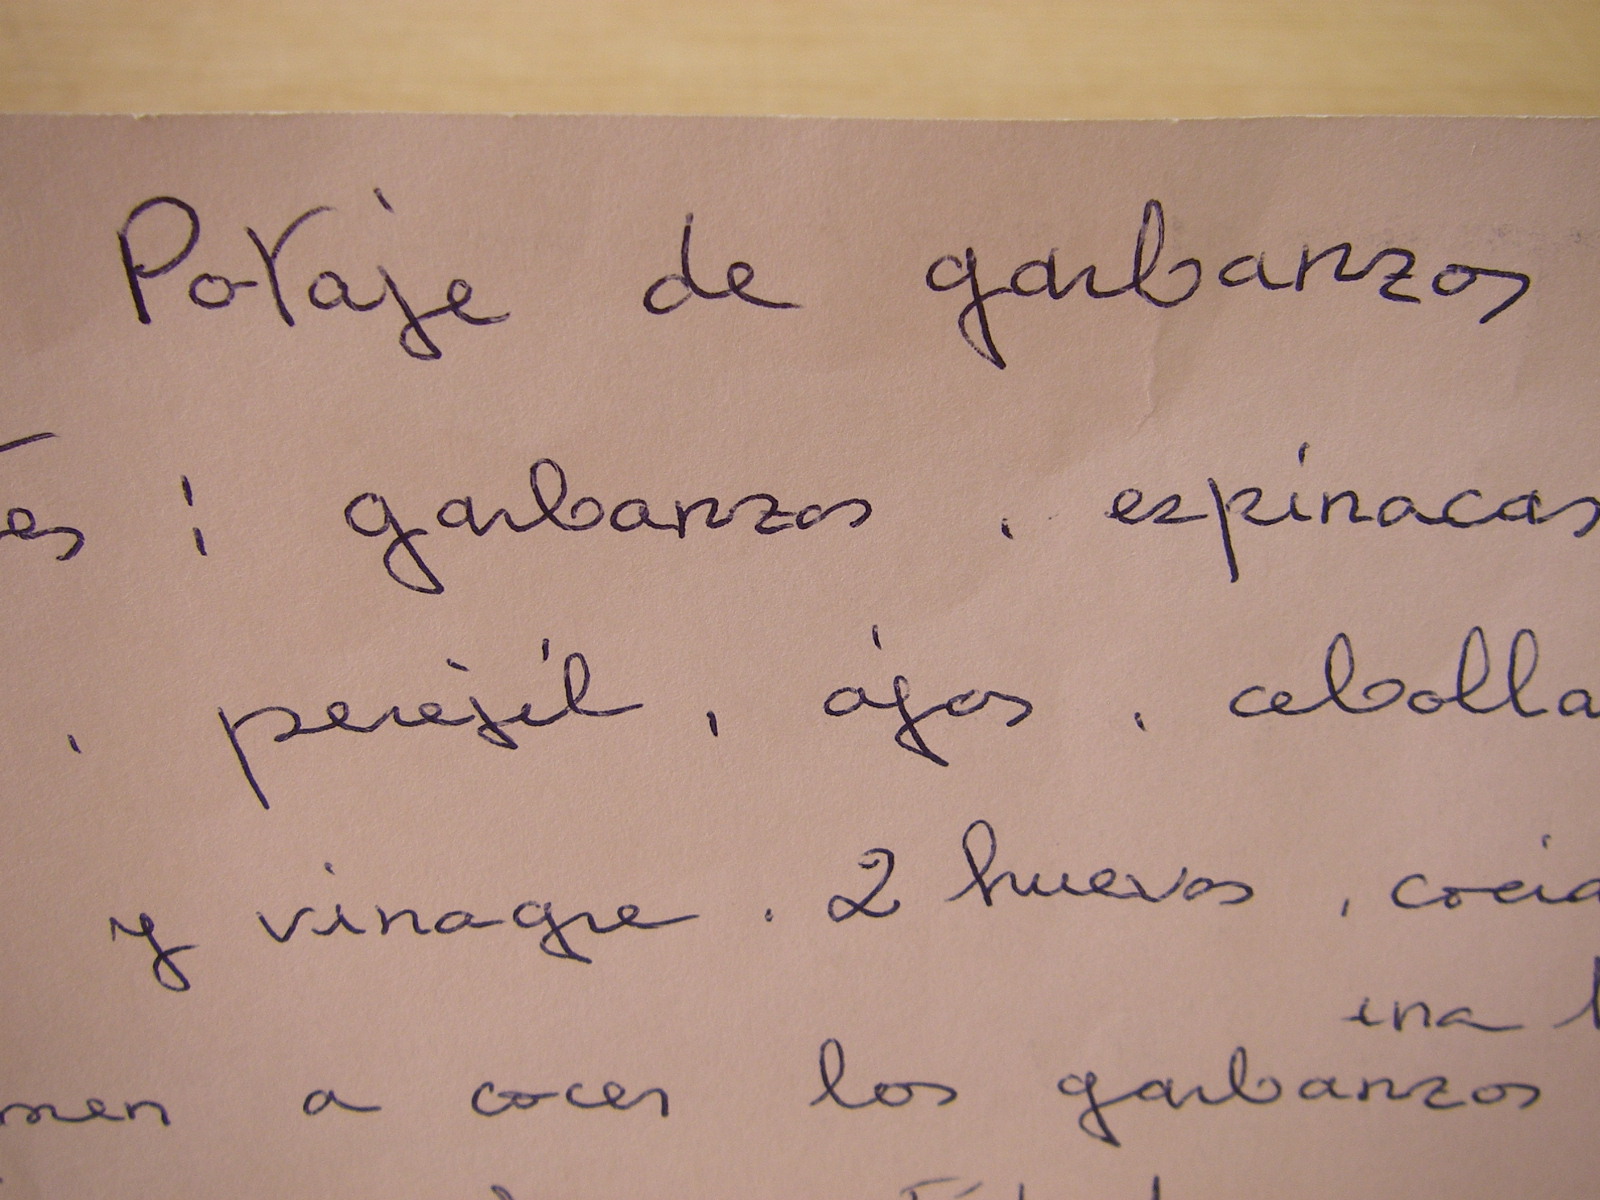 Potaje de garbanzos
tes : garbanzos , espinacas
, perejíl , ájos , cebolla
y vinagre . 2 huevos , cocid
ina
nen a cocer los garbanzos